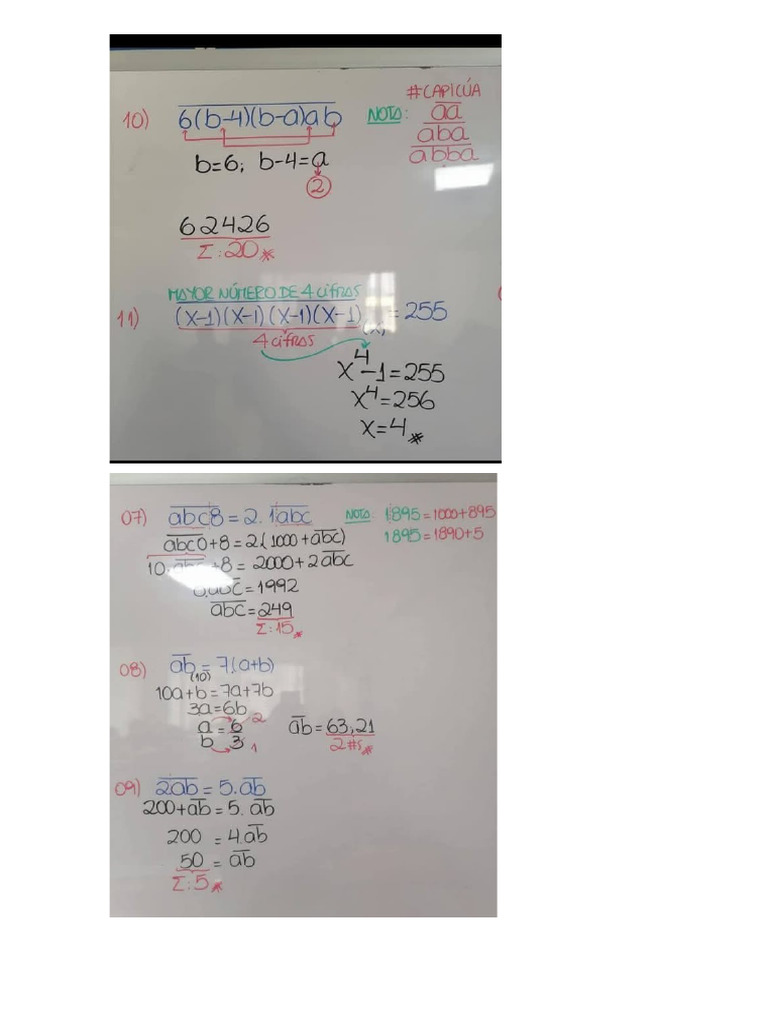 #CAPICÚA
10) 6(b-4)(b-a)ab NOTA: aa
aba
abba
b=6; b-4=a
2
62426
Σ:20*
MAYOR NÚMERO DE 4 CIFRAS
11) (x-1)(x-1)(x-1)(x-1)(x) = 255
4 CIFRAS
x⁴-1=255
x⁴=256
x=4*
07) abc8 = 2.1abc NOTA: 1895=1000+895
1895=1890+5
abc0+8=2(1000+abc)
+8= 2000+2abc
abc=1992
abc=249
Σ:15*
08) ab = 7(a+b)
(10)
10a+b=7a+7b
3a=6b
a = 6 2
b 3 1
ab=63;21
2#s*
09) 2ab = 5.ab
200+ab=5.ab
200 = 4.ab
50 = ab
Σ:5*